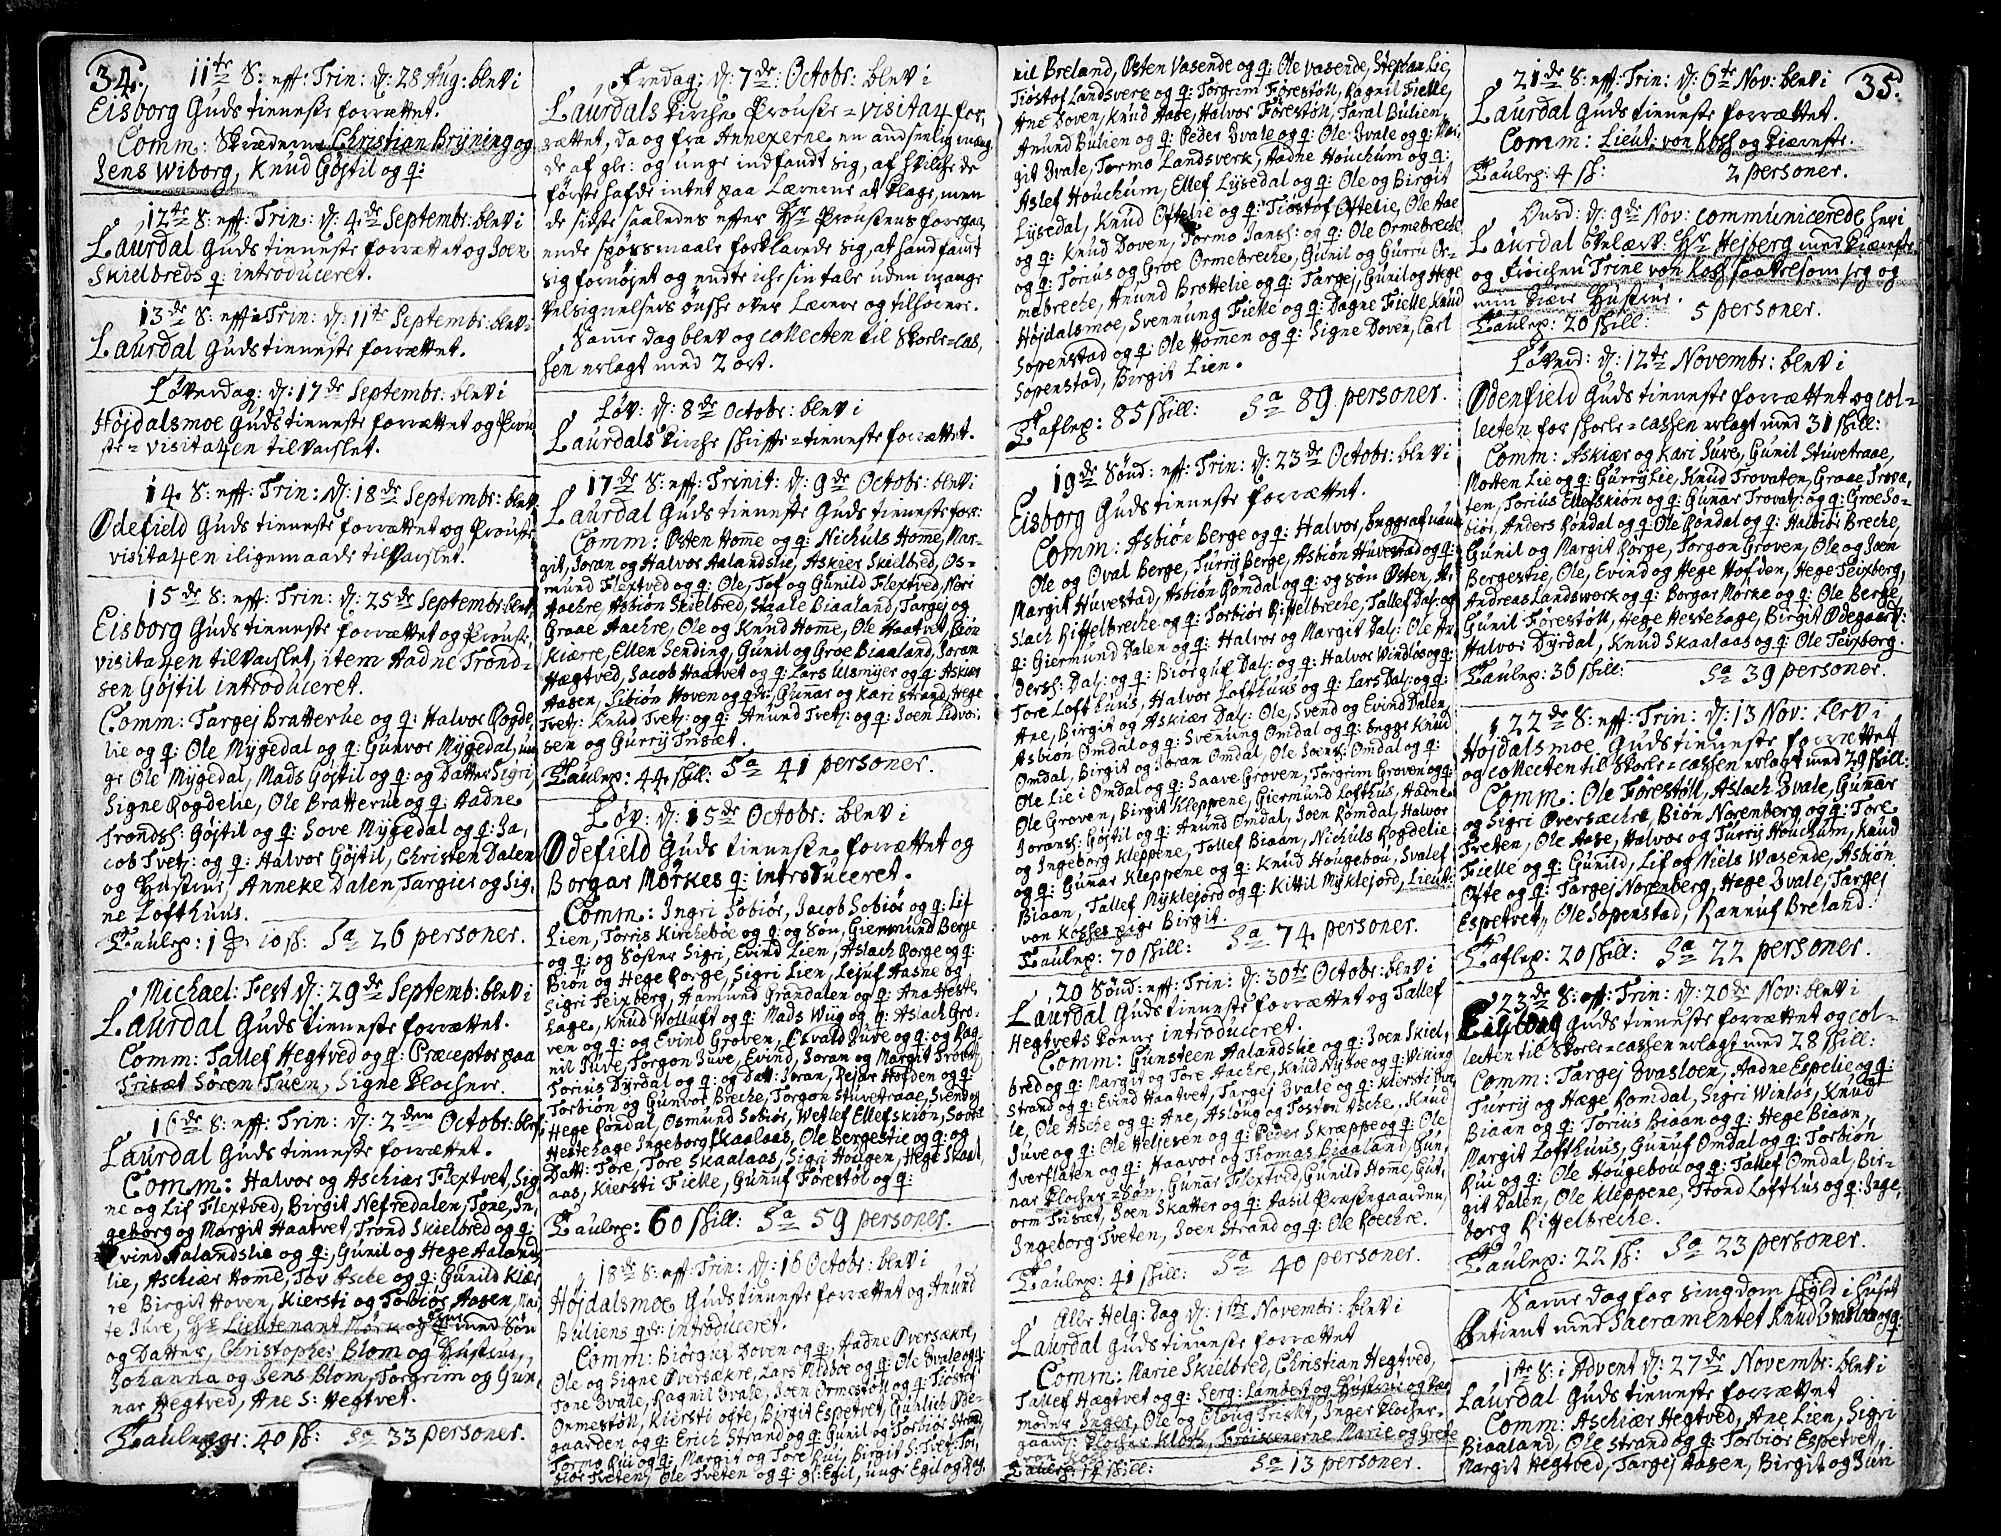 34.
11te S: eff: Trin: d: 28 Aug: blev i
Eisborg Guds tienneste forrættet.
Comm: Skræderne Christian Bryning og
Jens Wiborg, Knud Gøjtil og q:
12te S: eff: Trin: d: 4de Septembr: blev i
Laurdal Guds tienneste forrættet og Joen
Skielbreds q: introduceret.
13de S: eff: Trin: d: 11te Septembr: blev i
Laurdal Guds tienneste forrættet.
Løverdag: d: 17de Septembr: blev i
Højdalsmoe Guds tienneste forrættet og Prou-
ste-visitatzen tilvarslet.
14. S: eff: Trin: d: 18de Septembr: blev
Ødefield Guds tienneste forrættet og Prouste
visitatzen iligemaade tilvarslet.
15de S: eff: Trin: d: 25de Septembr: blev
Eisborg Guds tienneste forrættet og Prouste
visitatzen tilvarslet, item Aadne Trond-
sen Gøjtil introduceret.
Comm: Targej Bratterue og q: Halvor Rogde
lie og q: Ole Mygedal og q: Gunvor Mygedal, un
ge Ole Mygedal, Mads Gøjtil og q: og Datter Sigri,
Signe Rogdelie, Ole Bratterue og q: Aadne
Trondss: Gøjtil og q: Sove Mygedal og q: Ja-
cob Tvetz: og q: Halvor Gøjtil, Christen Dalen
og Hustrue, Anneke Dalen, Targier og Sig-
ne Lofthuus.
Taulep: 10 sk: Sa 26 personer.
Michael: Fest d: 29de Septemb: blev i
Laurdal Guds tienneste forrættet.
Comm: Tallef Hegtved og q: Præceptor paa
Trisæt Søren Tuen, Signe Klochner.
16de S: eff: Trin: d: 2den Octobr: blev
Laurdal Guds tienneste forrættet.
Comm: Halvor og Aschiær Flextvet, Sig
ne og Lif Flextved, Birgit Nefredalen, Tone, In-
geborg og Margit Haatvet, Trond Skielbred og q:
vind Aalandslie og q:, Gunil og Hege Aaland
lie, Aschiær Home, Tov Asche og q: Gunild Kiær
re Birgit Hoven, Kiersti og Torbiør Aasen,
te Juve, Hr Lieutenant og med Søn
og Datter, Christopher Blom og Hustrue,
Johanna og Jens Blom, Torgrim og Gun
nar Hegtved, Ane S: Hegtvet.
40 sk: Sa 33 personer.
Fredag: d: 7de Octobr: blev i
Laurdals Kirche Prouste-visitatz for,
rættet, da og fra Annexerne en andseenlig mæng
de af gl: og unge indfandt sig, af hvilche de
første hafde intet paa Lærerne at klage, men
de sidste saaledes efter Hr Proustens foregaa
ende spøssmaale forklarede sig, at hand fandt
sig fornøyet og endte iche sin tale uden mange
velsignelsers ønske over Lærere og tilhørere.
Samme dag blev og collecten til Skoele-cas-
sen erlagt med 2 ort.
Løv: d: 8de Octobr: blev i
Laurdals Kirche skrifte-tienneste forrættet.
17de S: eff: Trinit: d: 9de Octobr: blev i
Laurdal Guds tienneste Guds tienneste for:
Comm: Østen Home og q: Nichuls Home, Mar-
git, Joran og Halvor Aalandslie, Askier Skielbred, Os-
mund Flextved og q: Ole, Tof og Gunild Flextved,
Aachre, Asbiøn Skielbred, Staale Biaaland, Targej og
Graae Aachre, Ole og Knud Home, Ole Haatvet, Biøn
Kiærre, Ellen Sending, Gunil og Groe Biaaland, Joran
Hægtved, Jacob Haatvet og q: Lars Ulsmyer og q: Askier
Aasen, Sibiøn Hoven og q: Gunar og Kari Strand, Hege
Tvetz: Knud Tvetz: og q: Anund Tvetz: og q: Joen Ledvor-
sen og Gurry Trisæt.
Taulep: 44 skil: Sa 41 personer.
Løv: d: 15de Octobr: blev i
Ødefield Guds tienneste forrættet og
Borgar Mørkes q: introduceret.
Comm: Ingri Sobiør, Jacob Sobiør og q: Lif
Lien, Torris Kirchebøe og q: og Søn, Giermund Berge
og q: og Søster Sigri, Evind Lien, Aslach Rorge og q:
Biøn og Hege Rorge, Sigri Lien, Leijuf Aasne og
Sigri Teixberg, Aamund Grandalen og q: Ana Heste-
hage, Knud Wolluft og q: Mads Wug og q: Aslach Gro-
ven og q: og Evind Groven, Osvald Juve og q: og Rag
nil Juve, Torgon Juve, Evind, Joran og Margit
Torius Dyrdal og q: og Datt: Joran, Pejar Hofden og q:
Torbiøn og Gunvor Breche, Torgon Stuvetraae, Svend og
Hege Røndal, Osmund Sobiør, Wetlef Ellefskiøn,
Hestehage Ingeborg Skaalaas, Ole Bergestie og q: og
Datt: Tore, Tore Skaalaas, Sigri Hougen, Hege Skaal
aas, Kiersti Fielle, Gunuf Førestøl og q:
Taulep: 60 skill: Sa 59 personer.
18de S: eff: Trin: d: 16 Octobr: blev i
Højdalsmoe Guds tienneste forrættet og Anund
Buliens q: introduceret.
Comm: Biørgief Doven og q: Aadne Øversækre,
Ole og Signe Øversækre, Lars Midbøe og q: Ole Zvale og q:
Tone Zvale, Ragnil Zvale, Joen Ormestøll og q:
Ormestøll, Kiersti Ofte, Birgit Espetvet, Gunlich
gaarden og q: Erich Strand og q: Gunil og Torbiør Strand,
Tormo Rui og q: Margit og Tore Rui, Birgit S: Tvet:
Tveten, Ole Tveten og q: gl: Egil, unge Egil og Rag
nil Breland, Østen Vasende og q: Ole Vasende, Stephan Lie,
Tiøstof Landsverk og q: Torgrim Førestøll, Ragnil Fielle,
Ane Doven, Knud Aase, Halvor Førestøll, Taral Bulien,
Anund Bulien og q: Peder Zvale og q: Ole Zvale og q: Mar-
git Zvale, Tormo Landsverk, Aadne Houchum og q:
Aslef Houchum, Ellef Lysedal og q: Ole og Birgit
Lysedal, Knud Oftelie og q: Tiøstof Oftelie, Ole Aae
og q: Knud Doven, Tormo Janss: og q: Ole Ormebreche
og q: Torius og Groe Ormebreche, Gunil og Gurru Or-
mebreche, Anund Brottelie og q: Targej, Gunil og Hege
Højdalsmoe, Svennung Fielle og q: Dagne Fielle Knud
Sopenstad og q: Ole Homen og q: Signe Doven, Carl
Sopenstad, Birgit Lien.
Taflep: 85 skill: Sa 89 personer.
19de Sønd: eff: Trin: d: 23de Octobr: blev i
Eisborg Guds tienneste forrættet.
Comm: Asbiør Berge og q: Halvor, begge af navn
Ole og Oval Berge, Turry Berge, Asbiøn Huvestad og q:
Margit Huvestad, Asbiøn Romdal og q: og Søn Østen, A-
slach Riffelbreche og q: Torbiør Riffelbreche, Tallef Dal: og
q: Giermund Dalen og q: Halvor og Margit Dal: Ole An
derss: Dal: og q: Biørguf Dal: og q: Halvor Windløs og q:
Tore Lofthuus, Halvor Lofthuus og q: Lars Dal: og q:
Ane, Birgit og Askiær Dal: Ole, Svend og Evind Dalen,
Asbiøn Omdal og q: Svenung Omdal og q: begge Knud
Omdal, Birgit og Joran Omdal, Ole Joenss: Omdal og q:
Ole Lie i Omdal og q: Saave Groven, Torgrim Groven og q:
Ole Groven, Birgit Kleppene, Giermund Lofthus, Aadne
Joranss: Gøjtil og q: Anund Omdal, Joen Romdal, Halvor
og Ingeborg Kleppene, Tollef Biaan, Nichuls Rogdelie
og q: Gunar Kleppene og q: Knud Hougebou, Svalef
Biaan, Tallef Myklejord og q: Kittil Myklejord, Lieut:
von Kosses pige Birgit.
Taulep: 70 skill: Sa 74 personer.
20 Sønd: eff: Trin: d: 30te Octobr: blev i
Laurdal Guds tienneste forrættet og Tallef
Hegtvets Kone introduceret.
Comm: Gunsteen Aalandslie og q: Joen Skiel-
bred og q: Margit og Tore Aachre, Knud Nyboe og q: Viking
Strand og q: Evind Haatvet, Targej Zvale og q: Kiersti
le, Ole Asche og q: Ane, Asloug og Tosten Asche, Knud
Juve og q: Ole Heljesen og q: Peder Skræppe og q: Ole
Jverflaten og q: Haavor og Thomas Biaaland, Gun-
nar Klocher-søn, Gunar Flextved, Gunild Home, Gut-
orm Trisæt, Joen Skatter og q: Aasil Præstegaarden,
Ingeborg Tveten, Joen Strand og q: Ole Roechre.
Taulep: 41 skill: Sa 40 personer.
Alle Helg: Dag d: 1ste Novembr: blev i
Laurdal Guds tienneste forrættet
Comm: Marie Skielbred, Christian Hegtved,
Tallef Hægtvet og q: Serg: Lambert og Hustrue og
moder Inger, Ole og Oloug Triset, Inger Klocher-
gaard: Klocher Kloch, Frøickenerne Marie og Grete
Taulep: 14 skill: Sa 13 personer.
35.
21de S: eff: Trin: d: 6te Nov: blev i
Laurdal Guds tienneste forrættet.
Comm: Lieut: von Koss og Kiæreste.
Taulep: 4 sk: 2 personer.
Onsd: d: 9de Nov: communicerede her i
Laurdal Hr Hejberg med Kiæreste
og Frøichen Trine von Koss saavelsom jeg og
min kiære Hustrue.
Taulep: 20 skill: 5 personer.
Løverd: d: 12te Novembr: blev i
Ødenfield Guds tienneste forrættet og col-
lecten for skoele-cassen erlagt med 31 skill:
Comm: Askiær og Kari Juve, Gunil Stuvetraae,
Morten Lie og q: Gurry Lie, Knud Trovaten, Graae Trova-
ten, Torius Ellefskiøn og q: Gunar Trovatz: og q: Groe So-
biør, Anders Røndal og q: Ole Røndal og q: Halbiør Breche,
Gunil og Margit Rorge, Torgon Groven, Ole og Joen
Bergestie, Ole, Evind og Hege Hofden, Hege Teixberg,
Andreas Landswerk og q: Borgar Mørke og q: Ole Berge,
Gunil Førestøll, Hege Hestehage, Birgit Ødegaard:
Halvor Dyrdal, Knud Skaalaas og q: Ole Teixberg.
Taulep: 36 skill: Sa 39 personer.
22de S: eff: Trin: d: 13 Nov: blev i
Højdalsmoe Guds tienneste forrættet
og collecten til Skoele-cassen erlagt med 29 skill:
Comm: Ole Førestøll, Aslach Zvale, Gunnar
og Sigri Øversæchre, Biøn Norenberg og q: Tore
Tveten, Ole Aase, Halvor og Turry Houchum, Knud
Fielle og q: Gunuld, Lif og Niels Wasende, Asbiøn
Ofte og q: Targej Norenberg, Hege Zvale, Targej
Espetvet, Ole Sopenstad, Rannuf Breland.
Taflep: 20 skill: Sa 22 personer.
23de S: eff: Trin: d: 20de Nov: blev i
Eisborg Guds tienneste forrættet og col-
lecten til Skoele-cassen erlagt med 28 skill:
Comm: Targej Zvasloen, Aadne Espelie og q:
Turry og Hæge Romdal, Sigri Winløs, Knud
Biaan og q: Torius Biaan og q: Hege Biaan,
Margit Lofthuus, Gunuf Omdal og q: Torbiøn
Rui og q: Ole Hougebou og q: Tallef Omdal, Bir-
git Dalen, Ole Kleppene, Trond Lofthus og q: Inge-
borg Riffelbreche.
Taulep: 22 sk: Sa 23 personer.
Samme dag for singdom skyld i huset
betient med Sacramentet Knud og q:
1ste S: i Advent d: 27de Novembr: blev i
Laurdal Guds tienneste forrættet
Comm: Aschiær Hegtved, Ane Lien, Sigri
Biaaland, Ole Strand og q: Torbiør Espetvet,
Margit Hegtved, Targej Aasen, Birgit og